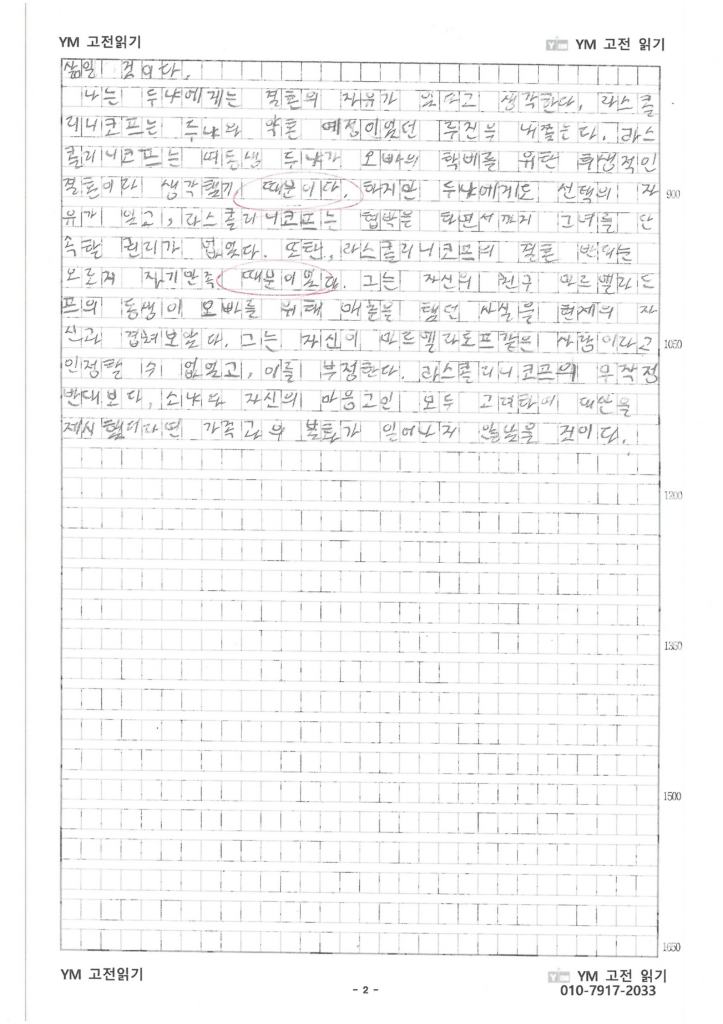 YM 고전읽기
YM 고전 읽기
삶일 것이다.
나는 두냐에게는 결혼의 자유가 있다고 생각한다. 라스콜
리니코프는 두냐와 약혼 예정이었던 루진을 내쫓는다. 라스
콜리니코프는 여동생 두냐가 오빠의 학비를 위한 희생적인
결혼이라 생각했기 때문이다. 하지만 두냐에게도 선택의 자 900
유가 있고, 라스콜리니코프는 협박을 하면서까지 그녀를 단
속할 권리가 없었다. 또한, 라스콜리니코프의 결혼 반대는
오로지 자기만족 때문이었다. 그는 자신의 친구 마르멜라도
프의 동생이 오빠를 위해 매춘을 했던 사실을 현재의 자
신과 겹쳐보았다. 그는 자신이 마르멜라도프같은 사람이라고 1050
인정할 수 없었고, 이를 부정한다. 라스콜리니코프의 무작정
반대보다, 소냐와 자신의 마음 모두 고려한 대안을
제시했더라면 가족과의 불화가 일어나지 않았을 것이다.
1200
1350
1500
1650
YM 고전읽기
- 2 -
YM 고전 읽기
010-7917-2033